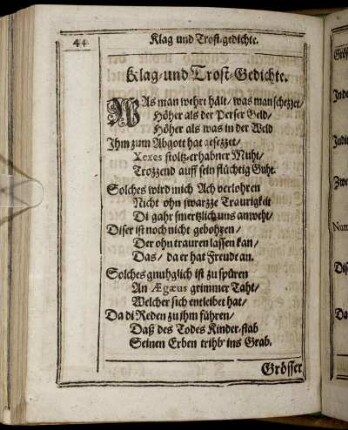 44 Klag und Trost-gedichte.
Klag-und Trost-Gedichte.
WAs man wehrt hält/ was man schezzet/
Höher als der Perser Geld/
Höher als was in der Weld
Ihm zum Abgott hat gesezzet/
Xexes stoltz-erhabner Muht/
Trozzend auff sein flüchtig Guht.
Solches wird mich Ach verlohren
Nicht ohn swarzze Traurigkeit
Di gahr smertzlich uns anweht/
Diser ist noch nicht gebohren/
Der ohn trauren lassen kan/
Das/ da er hat Freude an.
Solches gnuhglich ist zu spüren
An Ægæus grimmer Taht/
Welcher sich entleibet hat/
Da di Reden zu ihm führen/
Daß des Todes Kinder-stab
Seinen Erben trihb ins Grab.
Grösser